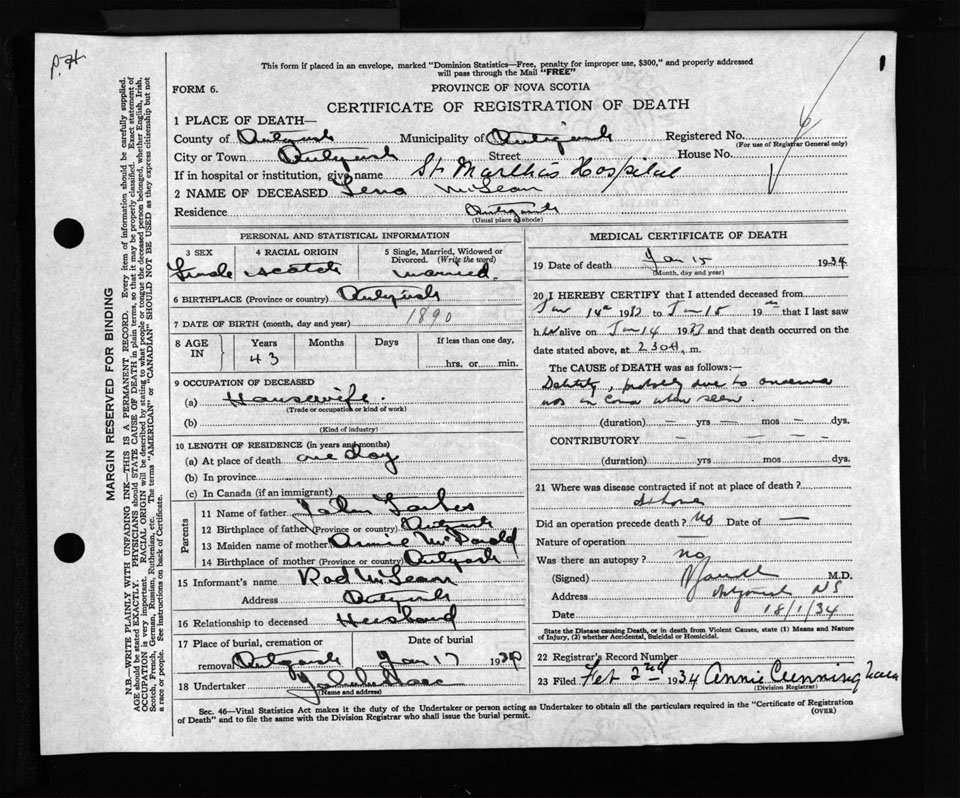 P.H.
1
This form if placed in an envelope, marked "Dominion Statistics—Free, penalty for improper use, $300," and properly addressed
will pass through the Mail "FREE"
FORM 6.
PROVINCE OF NOVA SCOTIA
CERTIFICATE OF REGISTRATION OF DEATH
1 PLACE OF DEATH—
County of Antigonish Municipality of Antigonish Registered No. 6
(For use of Registrar General only)
City or Town Antigonish Street House No.
If in hospital or institution, give name St Martha's Hospital
2 NAME OF DECEASED Lena McLean
Residence Antigonish
(Usual place of abode)
MARGIN RESERVED FOR BINDING
N.B.—WRITE PLAINLY WITH UNFADING INK—THIS IS A PERMANENT RECORD. Every item of information should be carefully supplied.
AGE should be stated EXACTLY. PHYSICIANS should STATE CAUSE OF DEATH in plain terms, so that it may be properly classified. Exact statement of
OCCUPATION is very important. RACIAL ORIGIN will be described by stating to what people or tongue the deceased person belonged, whether English, Irish,
Scotch, French, German, Russian, Ruthenian, etc. The terms "AMERICAN" or "CANADIAN" SHOULD NOT BE USED as they express citizenship but not
a race or people. See instructions on back of Certificate.
PERSONAL AND STATISTICAL INFORMATION
3 SEX 4 RACIAL ORIGIN 5 Single, Married, Widowed or
Divorced. (Write the word)
Female Scotch Married.
6 BIRTHPLACE (Province or country) Antigonish
7 DATE OF BIRTH (month, day and year) 1890
8 AGE IN Years Months Days If less than one day,
43 hrs. or min.
9 OCCUPATION OF DECEASED
(a) Housewife.
(Trade or occupation or kind of work)
(b)
(Kind of industry)
10 LENGTH OF RESIDENCE (in years and months)
(a) At place of death one day
(b) In province
(c) In Canada (if an immigrant)
Parents
11 Name of father John Forbes
12 Birthplace of father (Province or country) Antigonish
13 Maiden name of mother Annie McDonald
14 Birthplace of mother (Province or Country) Antigonish
15 Informant's name Rod McLean
Address Antigonish
16 Relationship to deceased Husband
17 Place of burial, cremation or Date of burial
removal Antigonish Jan 17 1934
18 Undertaker
(Name and address)
MEDICAL CERTIFICATE OF DEATH
19 Date of death Jan 15 1934
(Month, day and year)
20 I HEREBY CERTIFY that I attended deceased from
Jan 14th 19 to Jan 15 19 that I last saw
her alive on Jan 14 19 and that death occurred on
the date stated above, at 2 30 A, m.
The CAUSE of DEATH was as follows:—
Debility, probably due to
was in Coma when seen.
(duration) — yrs — mos — dys.
CONTRIBUTORY — — — —
(duration) yrs mos dys.
21 Where was disease contracted if not at place of death?
at home
Did an operation precede death? No Date of —
Nature of operation —
Was there an autopsy? no
(Signed) M.D.
Address Antigonish NS
Date 18/1/34
State the Disease causing Death, or in death from Violent Causes, state (1) Means and Nature
of Injury, (2) whether Accidental, Suicidal or Homicidal.
22 Registrar's Record Number
23 Filed Feb 2nd 1934 Annie Cunningham
(Division Registrar)
Sec. 46—Vital Statistics Act makes it the duty of the Undertaker or person acting as Undertaker to obtain all the particulars required in the "Certificate of Registration
of Death" and to file the same with the Division Registrar who shall issue the burial permit.
(OVER)